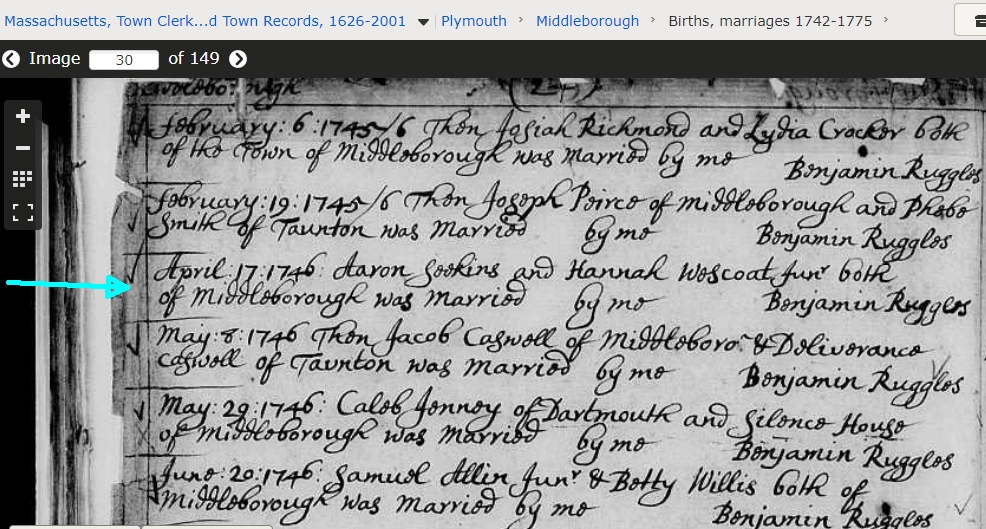 Massachusetts, Town Clerk...d Town Records, 1626-2001 ▼ Plymouth › Middleborough › Births, marriages 1742-1775 ›
Image 30 of 149
February: 6: 1745/6 Then Josiah Richmond and Lydia Crocker both
of the Town of Middleborough was Married by me
Benjamin Ruggles
February: 19: 1745/6 Then Joseph Peirce of middleborough and Phebe
Smith of Taunton was Married by me Benjamin Ruggles
April: 17: 1746: Aaron Seekins and Hannah Wescoat Junr both
of Middleborough was Married by me Benjamin Ruggles
May: 8: 1746 Then Jacob Caswell of Middleboro: & Deliverance
Caswell of Taunton was Married by me Benjamin Ruggles
May: 29: 1746: Caleb Jenney of Dartmouth and Silence House
of Middleborough was Married by me Benjamin Ruggles
June: 20: 1746: Samuel Allin Junr & Betty Willis both of
Middleborough was Married by me Benjamin Ruggles